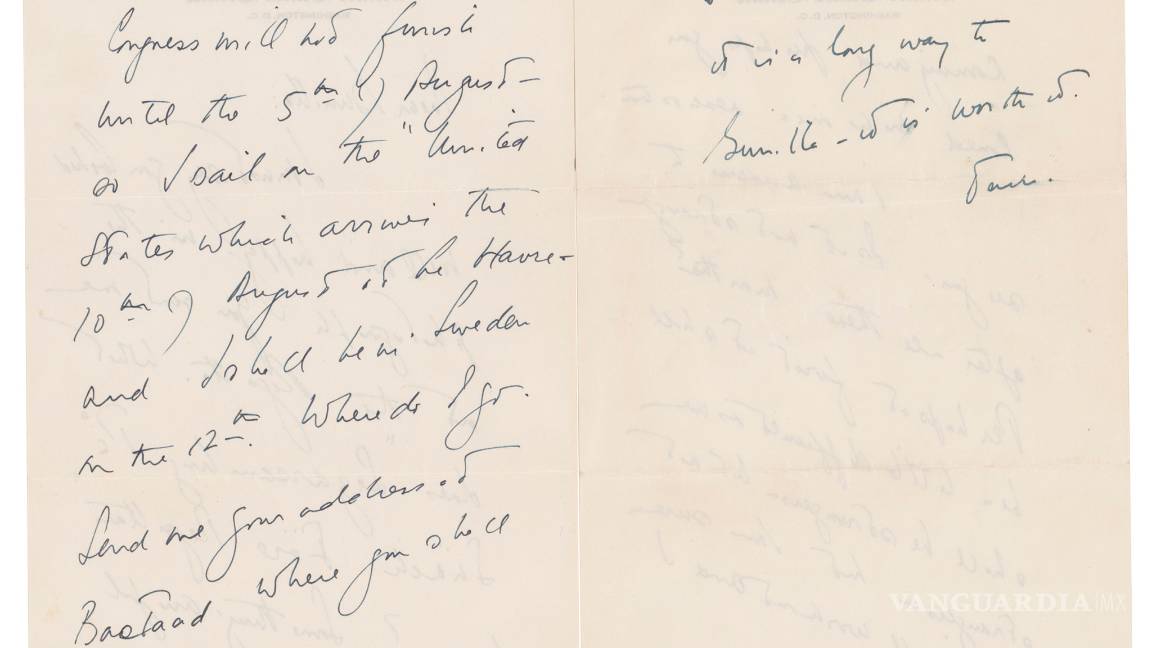 Congress will not finish
until the 5th of August –
so I sail on the "United
States which arrives the
10th of August at le Havre –
and I shall be in Sweden
on the 12th. Where do I go.
Send me your address at
Baastaad where you shall
it is a long way to
Gunilla – it is worth it.
VANGUARDIA MX